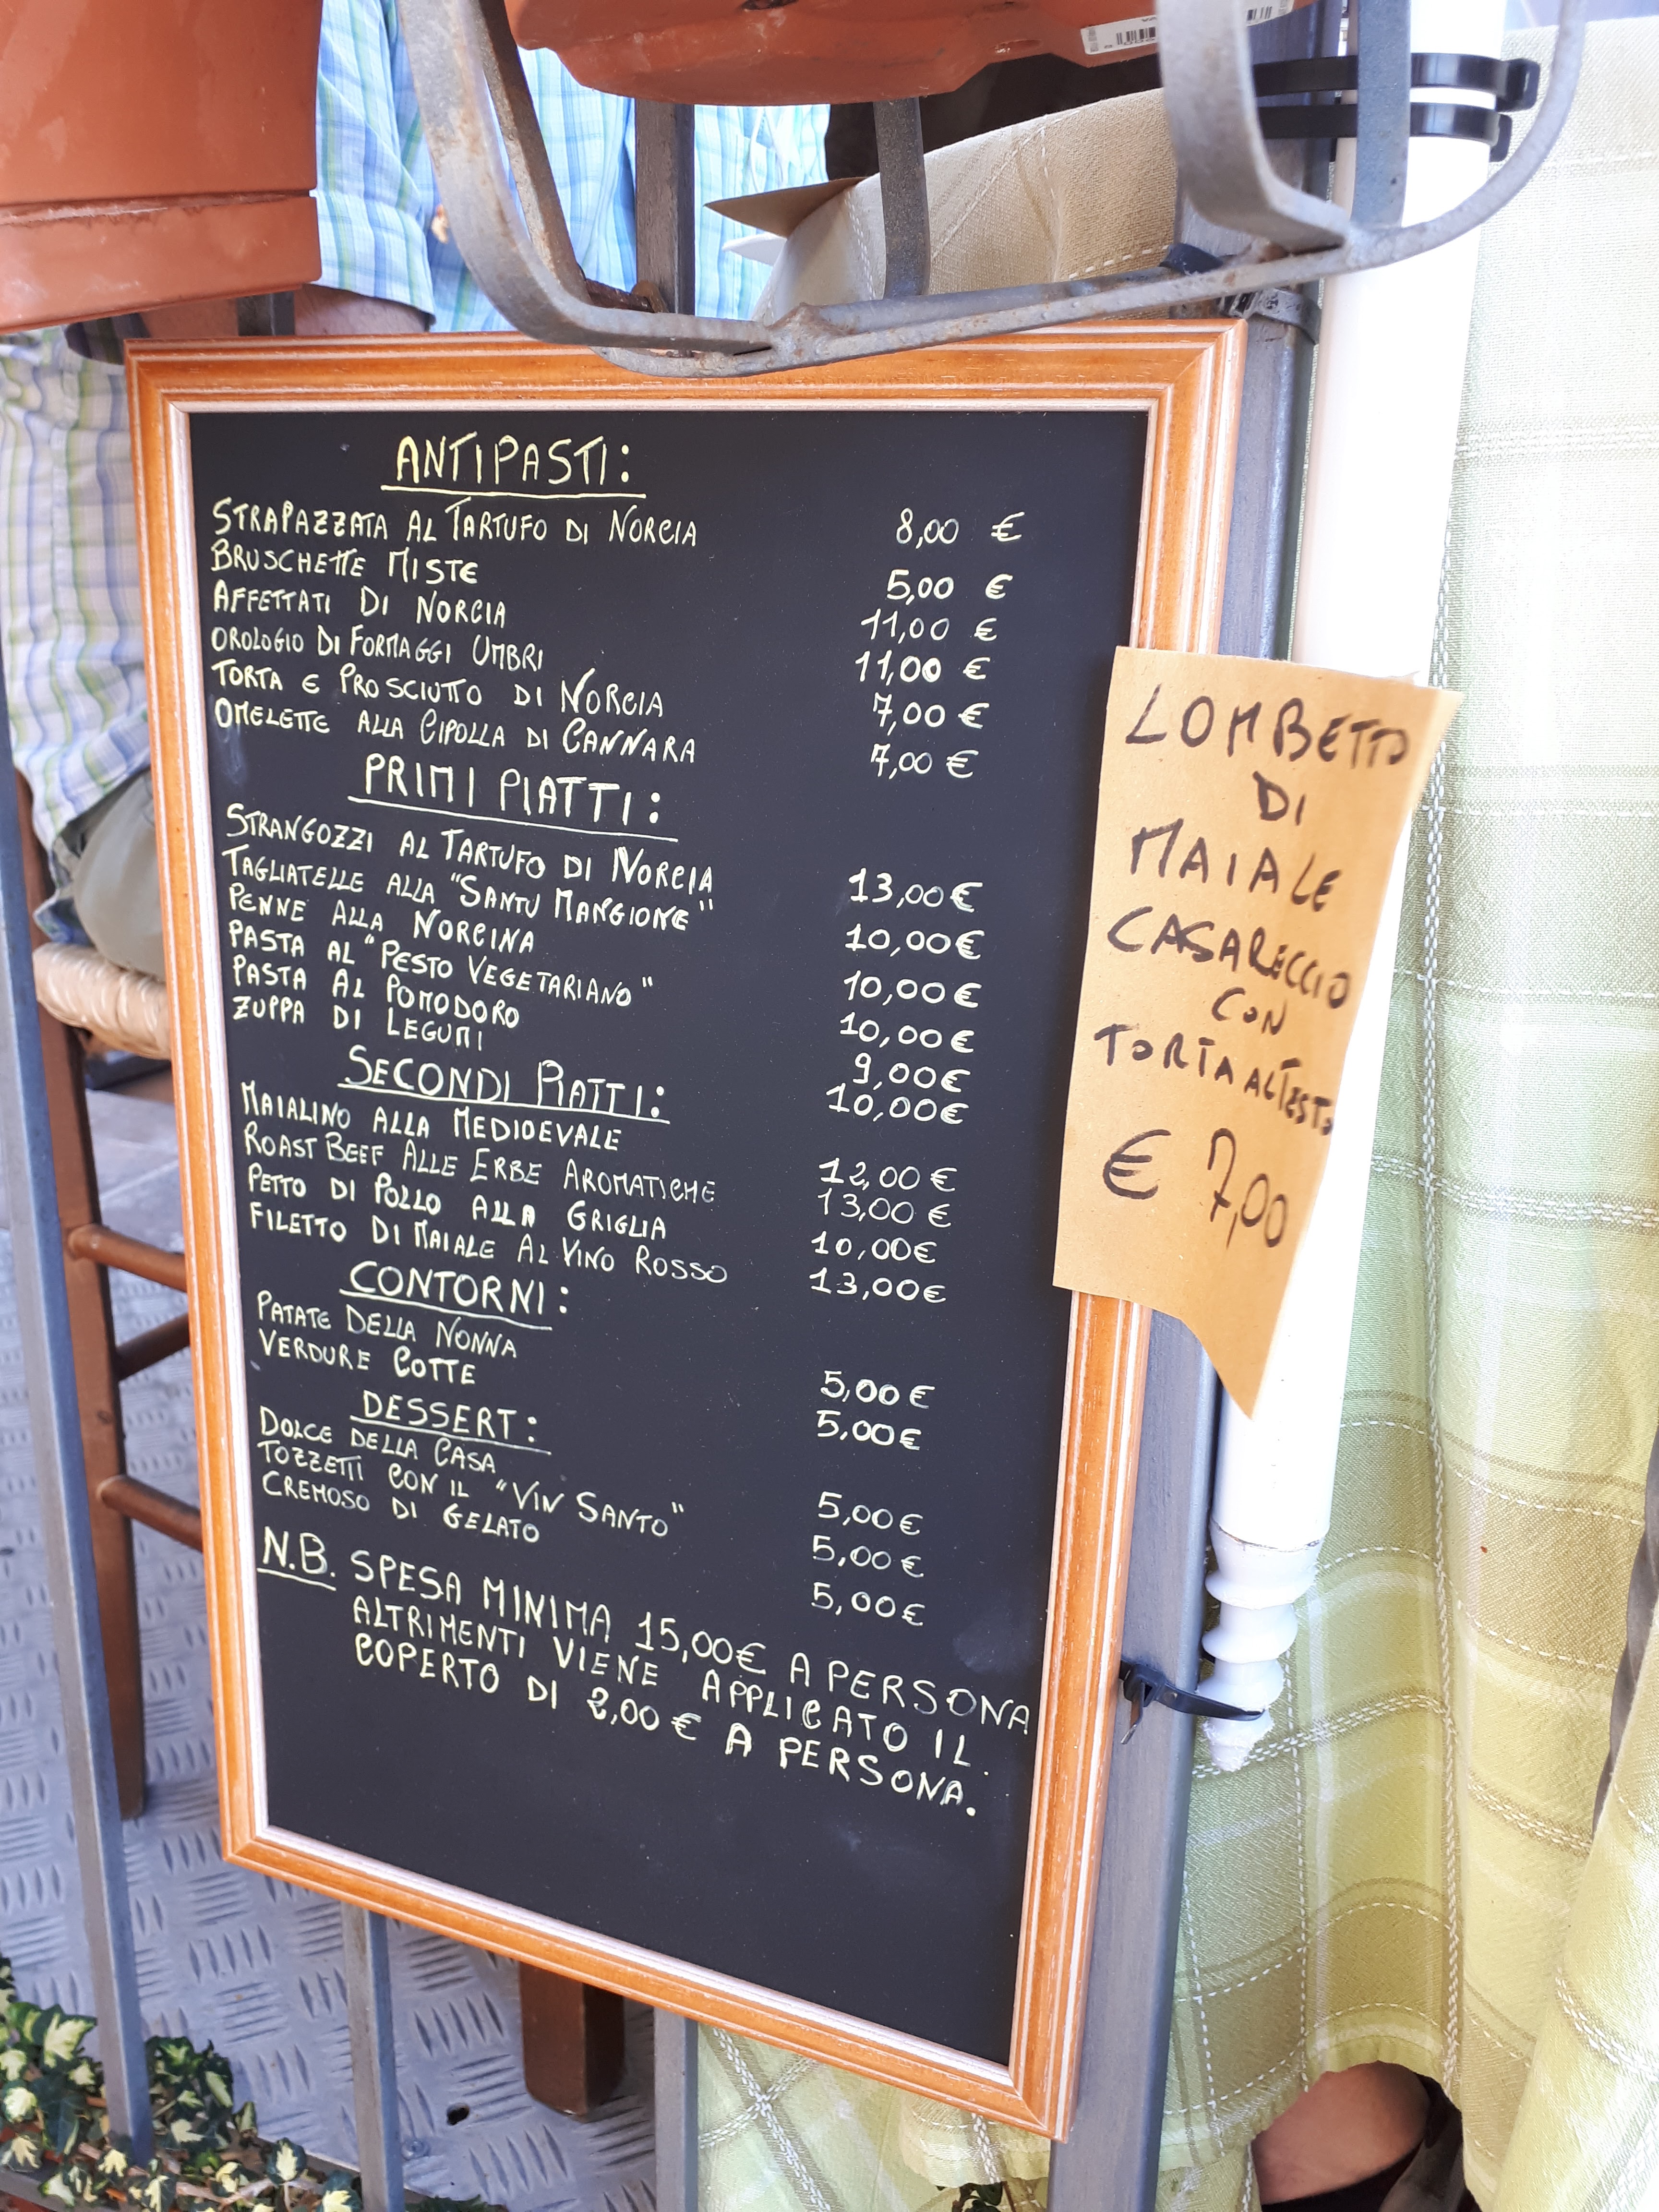 ANTIPASTI:
STRAPAZZATA AL TARTUFO DI NORCIA 8,00 €
BRUSCHETTE MISTE 5,00 €
AFFETTATI DI NORCIA 11,00 €
OROLOGIO DI FORMAGGI UMBRI 11,00 €
TORTA E PROSCIUTTO DI NORCIA 7,00 €
OMELETTE ALLA CIPOLLA DI CANNARA 7,00 €
PRIMI PIATTI:
STRANGOZZI AL TARTUFO DI NORCIA 13,00 €
TAGLIATELLE ALLA "SANTU MANGIONE" 10,00 €
PENNE ALLA NORCINA 10,00 €
PASTA AL "PESTO VEGETARIANO" 10,00 €
PASTA AL POMODORO 9,00 €
ZUPPA DI LEGUMI 10,00 €
SECONDI PIATTI:
MAIALINO ALLA MEDIOEVALE 12,00 €
ROAST BEEF ALLE ERBE AROMATICHE 13,00 €
PETTO DI POLLO ALLA GRIGLIA 10,00 €
FILETTO DI MAIALE AL VINO ROSSO 13,00 €
CONTORNI:
PATATE DELLA NONNA 5,00 €
VERDURE COTTE 5,00 €
DESSERT:
DOLCE DELLA CASA 5,00 €
TOZZETTI CON IL "VIN SANTO" 5,00 €
CREMOSO DI GELATO 5,00 €
N.B. SPESA MINIMA 15,00 € A PERSONA
ALTRIMENTI VIENE APPLICATO IL
COPERTO DI 2,00 € A PERSONA.
LOMBETTO
DI
MAIALE
CASARECCIO
CON
TORTA AL TESTO
€ 7,00